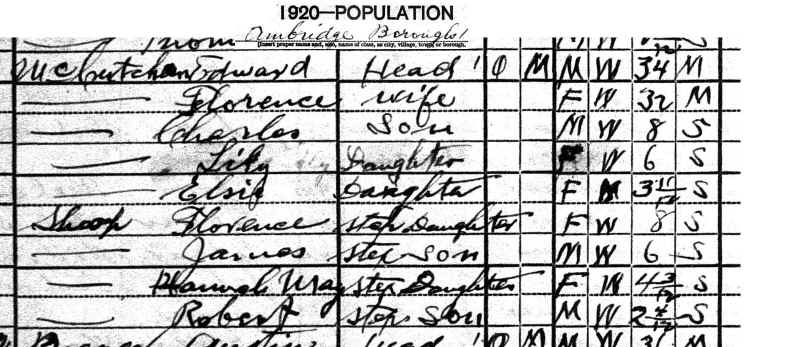 1920—POPULATION
Ambridge Borough
[Insert proper name and, also, name of class, as city, village, town, or borough.
McCutchan Edward Head O M M W 34 M
— Florence wife F W 32 M
— Charles Son M W 8 S
— Lily Daughter F W 6 S
— Elsie Daughter F W 3 11/12 S
Shoop Florence Step Daughter F W 8 S
— James Step Son M W 6 S
— Hannah May Step Daughter F W 4 3/12 S
— Robert Step Son M W S
Head O M M W M